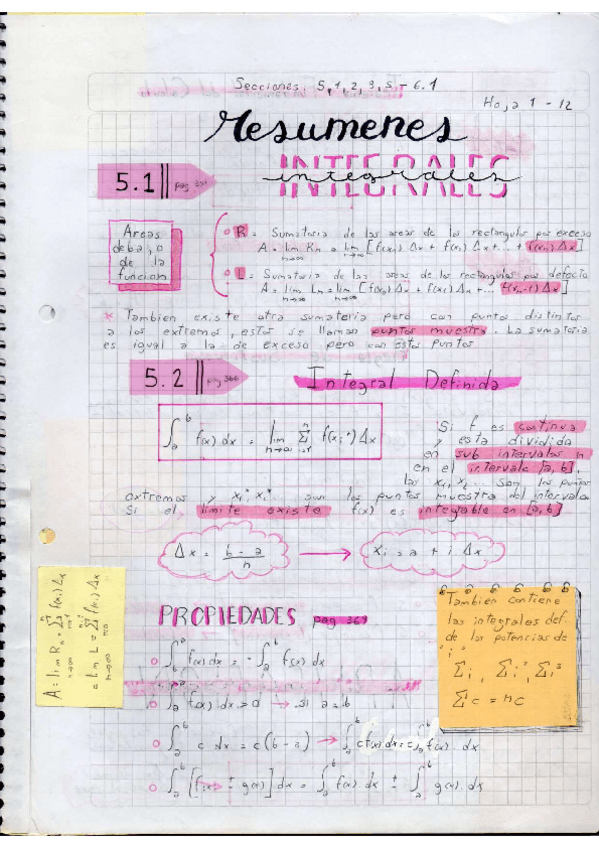 Secciones: 5,1,2,3,5 - 6.1
Hoja 1 - 12
Resumenes
INTEGRALES
integrales
5.1 pag
Areas debajo de la funcion
R = Sumatoria de las areas de los rectangulos por exceso
A = lim Rn = lim [f(x1) Δx + f(x2) Δx + ... + f(xn) Δx]
n→∞ n→∞
L = Sumatoria de las areas de los rectangulos por defecto
A = lim Ln = lim [f(x0) Δx + f(x1) Δx + ... f(xn-1) Δx]
n→∞ n→∞
* Tambien existe otra sumatoria pero con puntos distintos
a los extremos, estos se llaman puntos muestra. La sumatoria
es igual a la de exceso pero con estos puntos
5.2 pag 366
Integral Definida
∫_a^b f(x) dx = lim_{n→∞} Σ_{i=1}^n f(xi*) Δx
Si f es continua
y esta dividida
en sub intervalos n
en el intervalo [a, b],
las x0, x1 ... son los puntos
extremos y x1*, x2* ... son los puntos muestra del intervalo
Si el limite existe f(x) es integable en [a, b]
Δx = b - a / n → xi = a + i Δx
A = lim Rn = Σ f(xi) Δx
n→∞
= lim L = Σ f(xi) Δx
n→∞
PROPIEDADES pag 369
∫_b^a f(x) dx = - ∫_a^b f(x) dx
∫_a^b f(x) dx = 0 → si a = b
∫_a^b c dx = c(b - a) → ∫_a^b c f(x) dx = c ∫_a^b f(x) dx
∫_a^b [f(x) ± g(x)] dx = ∫_a^b f(x) dx ± ∫_a^b g(x) dx
Tambien contiene
las integrales def.
de las potencias de
"i"
Σi, Σi², Σi³
Σc = nc